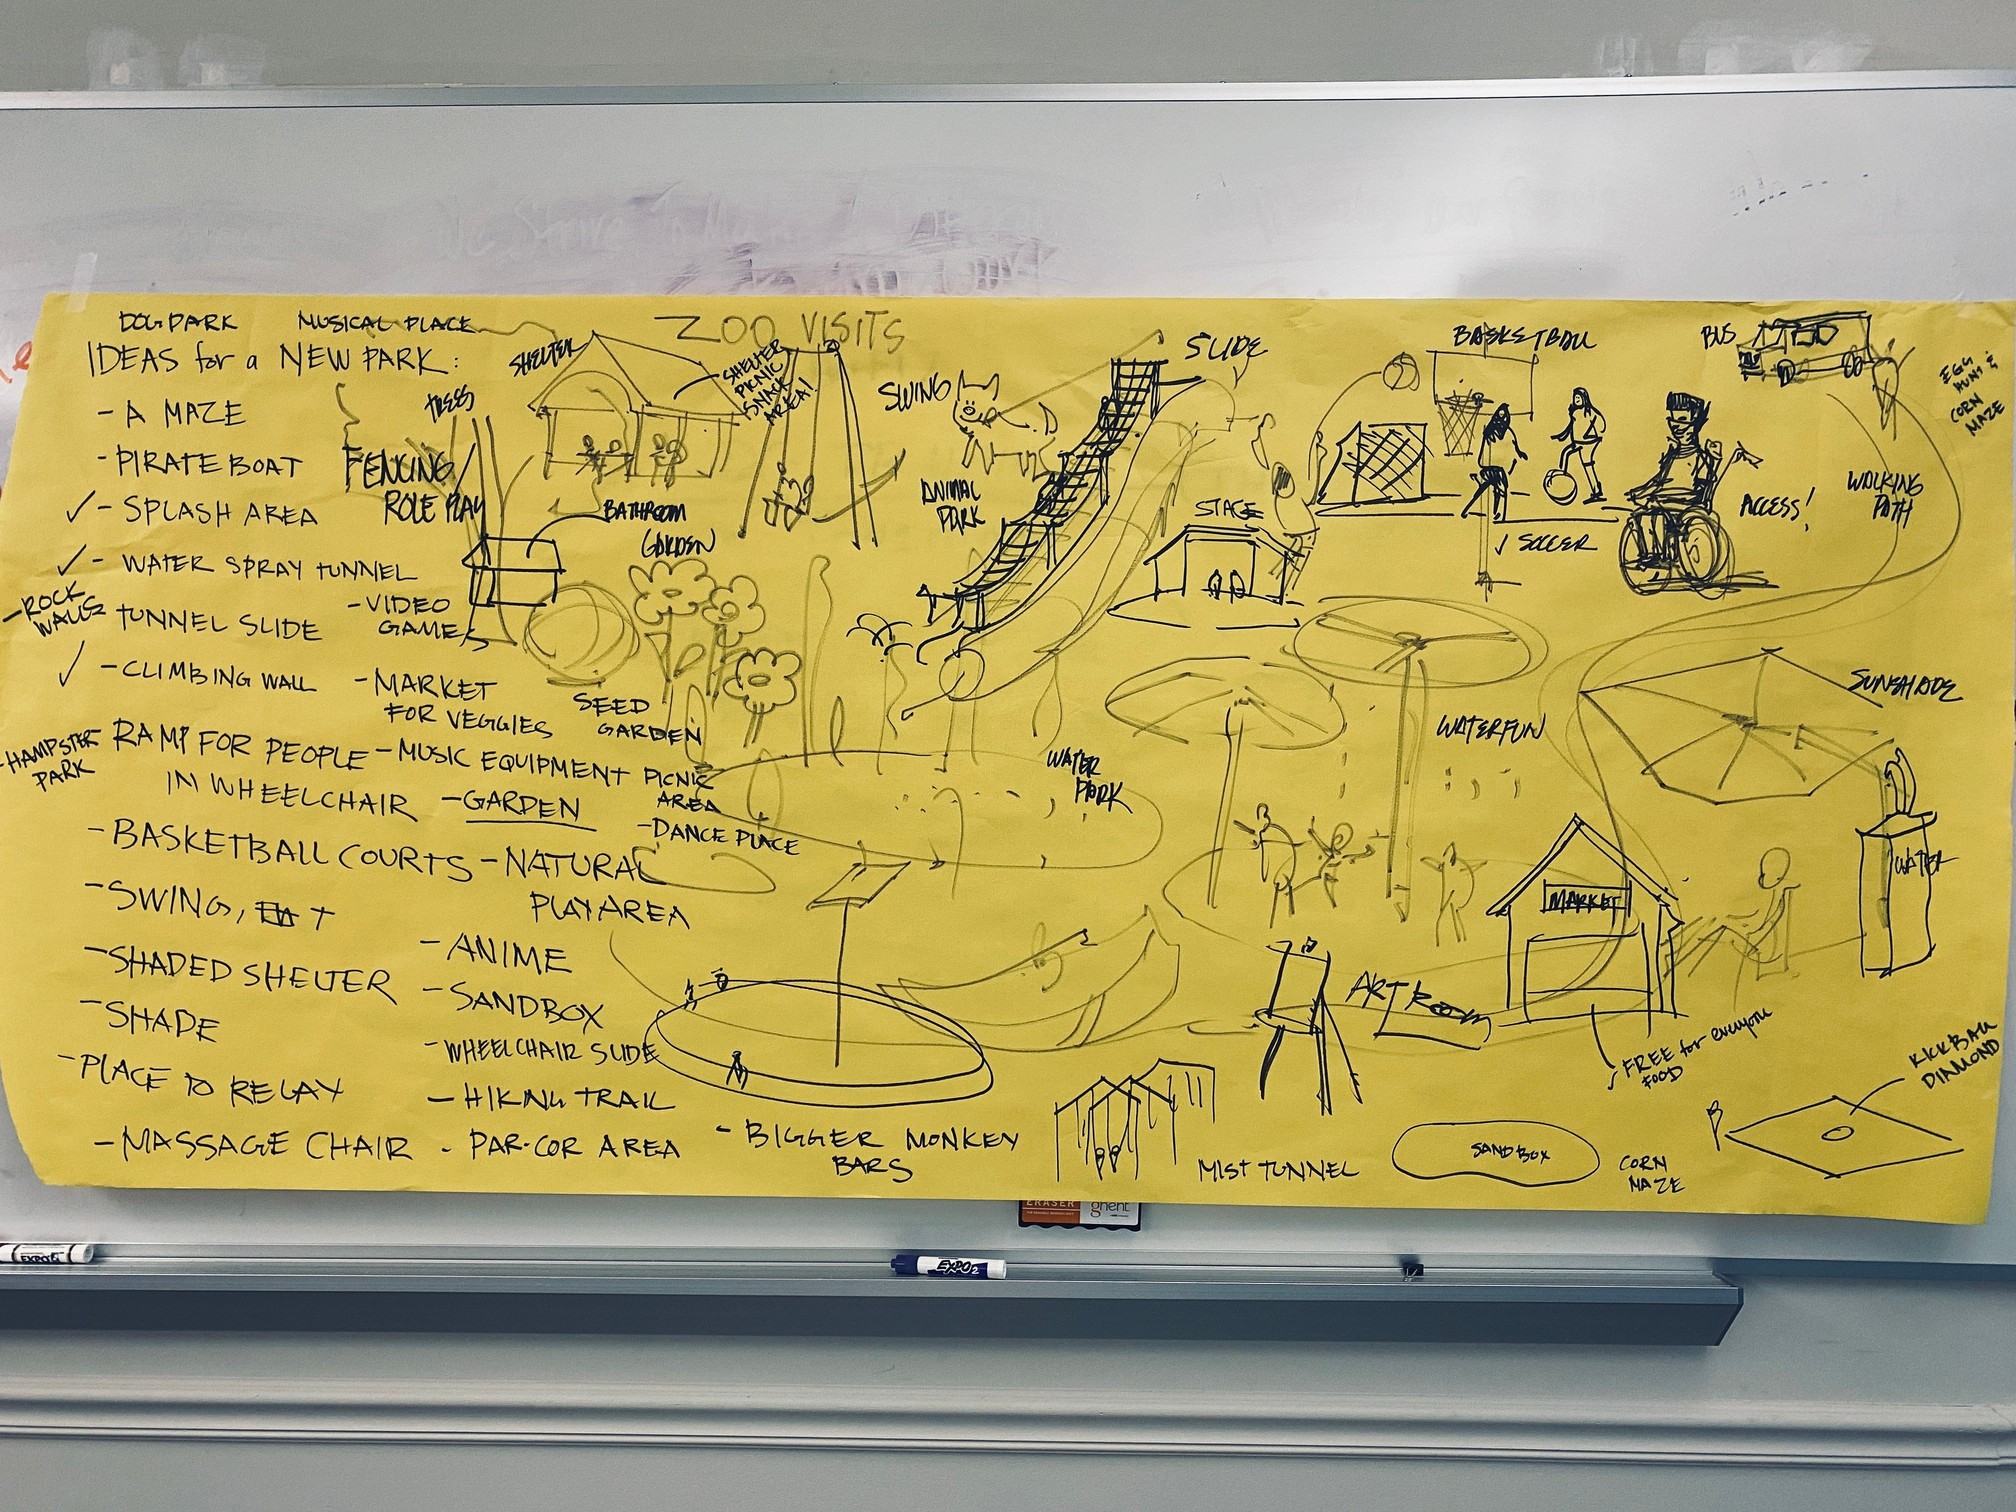 DOG PARK
MUSICAL PLACE
ZOO VISITS
IDEAS for a NEW PARK:
- A MAZE
- PIRATE BOAT
✓ - SPLASH AREA
✓ - WATER SPRAY TUNNEL
- ROCK
WALLS
TUNNEL SLIDE
✓ - CLIMBING WALL
- HAMPSTER
PARK
RAMP FOR PEOPLE
IN WHEELCHAIR
- BASKETBALL COURTS
- SWING,
- SHADED SHELTER
- SHADE
- PLACE TO RELAX
- MASSAGE CHAIR
TREES
FENCING/
ROLE PLAY
- VIDEO
GAMES
- MARKET
FOR VEGGIES
- MUSIC EQUIPMENT
- GARDEN
- NATURAL
PLAY AREA
- ANIME
- SANDBOX
- WHEELCHAIR SLIDE
- HIKING TRAIL
- PAR-COR AREA
- BIGGER MONKEY
BARS
PICNIC
AREA
- DANCE PLACE
SHELTER
SHELTER
PICNIC
SNACK
AREA!
BATHROOM
GARDEN
SEED
GARDEN
SWING
ANIMAL
PARK
SLIDE
STAGE
BASKETBALL
✓ SOCCER
BUS
ACCESS!
WALKING
PATH
EGG
HUNT &
CORN
MAZE
WATER
PARK
WATERFUN
SUNSHADE
WATER
MARKET
FREE for everyone
FOOD
ART ROOM
KICKBALL
DIAMOND
MIST TUNNEL
SANDBOX
CORN
MAZE
ERASER
ghent
EXPO
EXPO 2